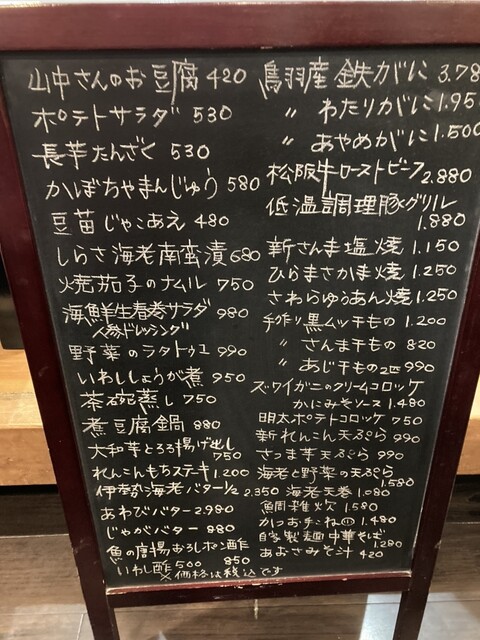 山中さんのお豆腐 420
ポテトサラダ 530
長芋たんざく 530
かぼちゃまんじゅう 580
豆苗じゃこあえ 480
しらさ海老南蛮漬 680
焼茄子のナムル 750
海鮮生春巻サラダ 980
人参ドレッシング
野菜のラタトゥユ 990
いわししょうが煮 950
茶碗蒸し 750
煮豆腐鍋 880
大和芋とろろ揚げ出し
750
れんこんもちステーキ 1.200
伊勢海老バター1/2 2.350
あわびバター 2.980
じゃがバター 880
魚の唐揚おろしポン酢
850
いわし酢 500
※価格は税込です
鳥羽産 鉄がに 3.78
〃 わたりがに 1.95
〃 あやめがに 1.500
松阪牛ローストビーフ 2.880
低温調理豚グリル
1.880
新さんま塩焼 1.150
ひらまさかま焼 1.250
さわらゆうあん焼 1.250
手作り黒ムツ干もの 1.200
〃 さんま干もの 820
〃 あじ干もの2匹 990
ズワイガニのクリームコロッケ
かにみそソース 1.480
明太ポテトコロッケ 750
新れんこん天ぷら 990
さつま芋天ぷら 990
海老と野菜の天ぷら
1.580
海老天巻 1.080
鯛雑炊 1.580
かつお手こね(1) 1.480
自家製麺中華そば
1.280
あおさみそ汁 420